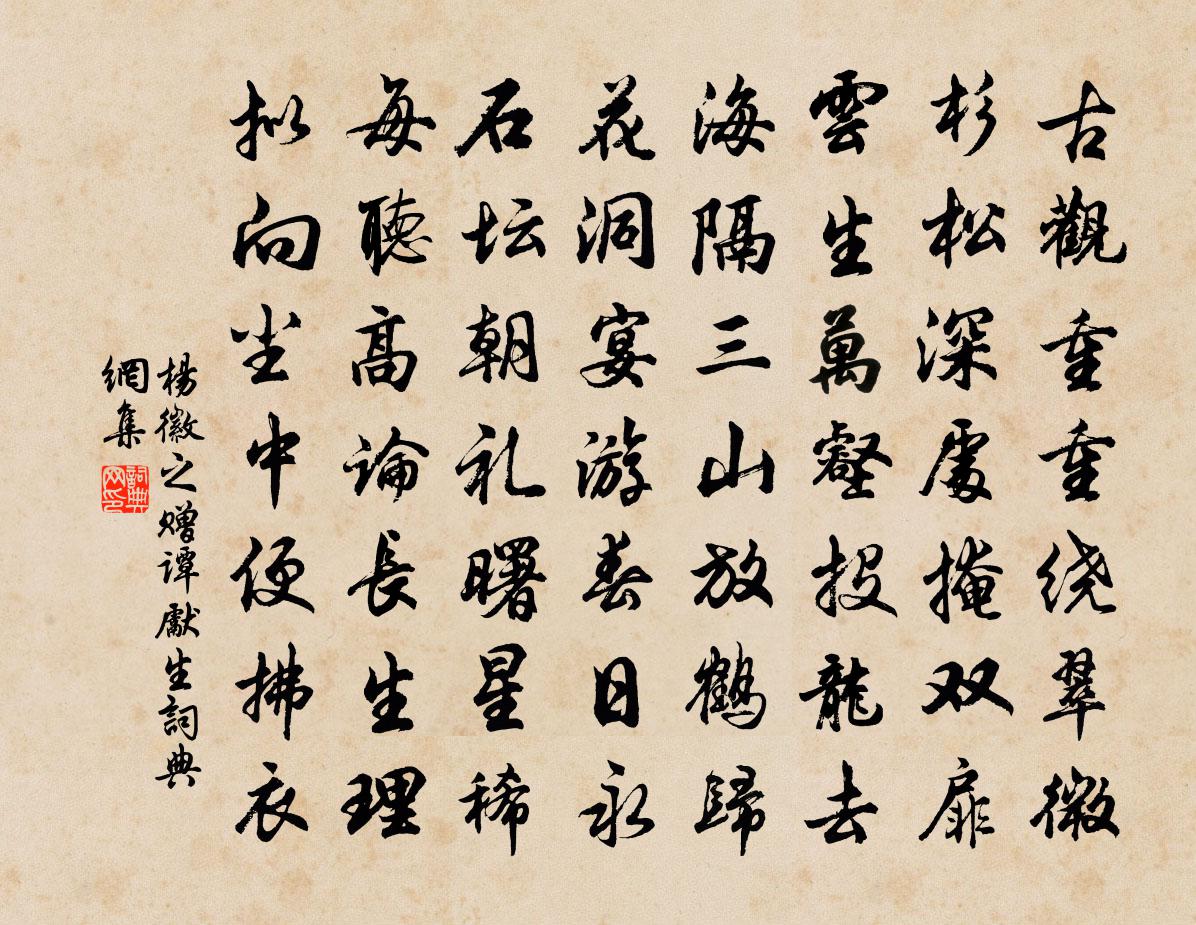 古觀重重绕翠微
杉松深處掩双扉
雲生萬壑投龍去
海隔三山放鶴歸
花洞宴游春日永
石坛朝礼曙星稀
每聽高論長生理
拟向尘中便拂衣
楊徽之赠谭獻生詞典
網集
詞典
网印